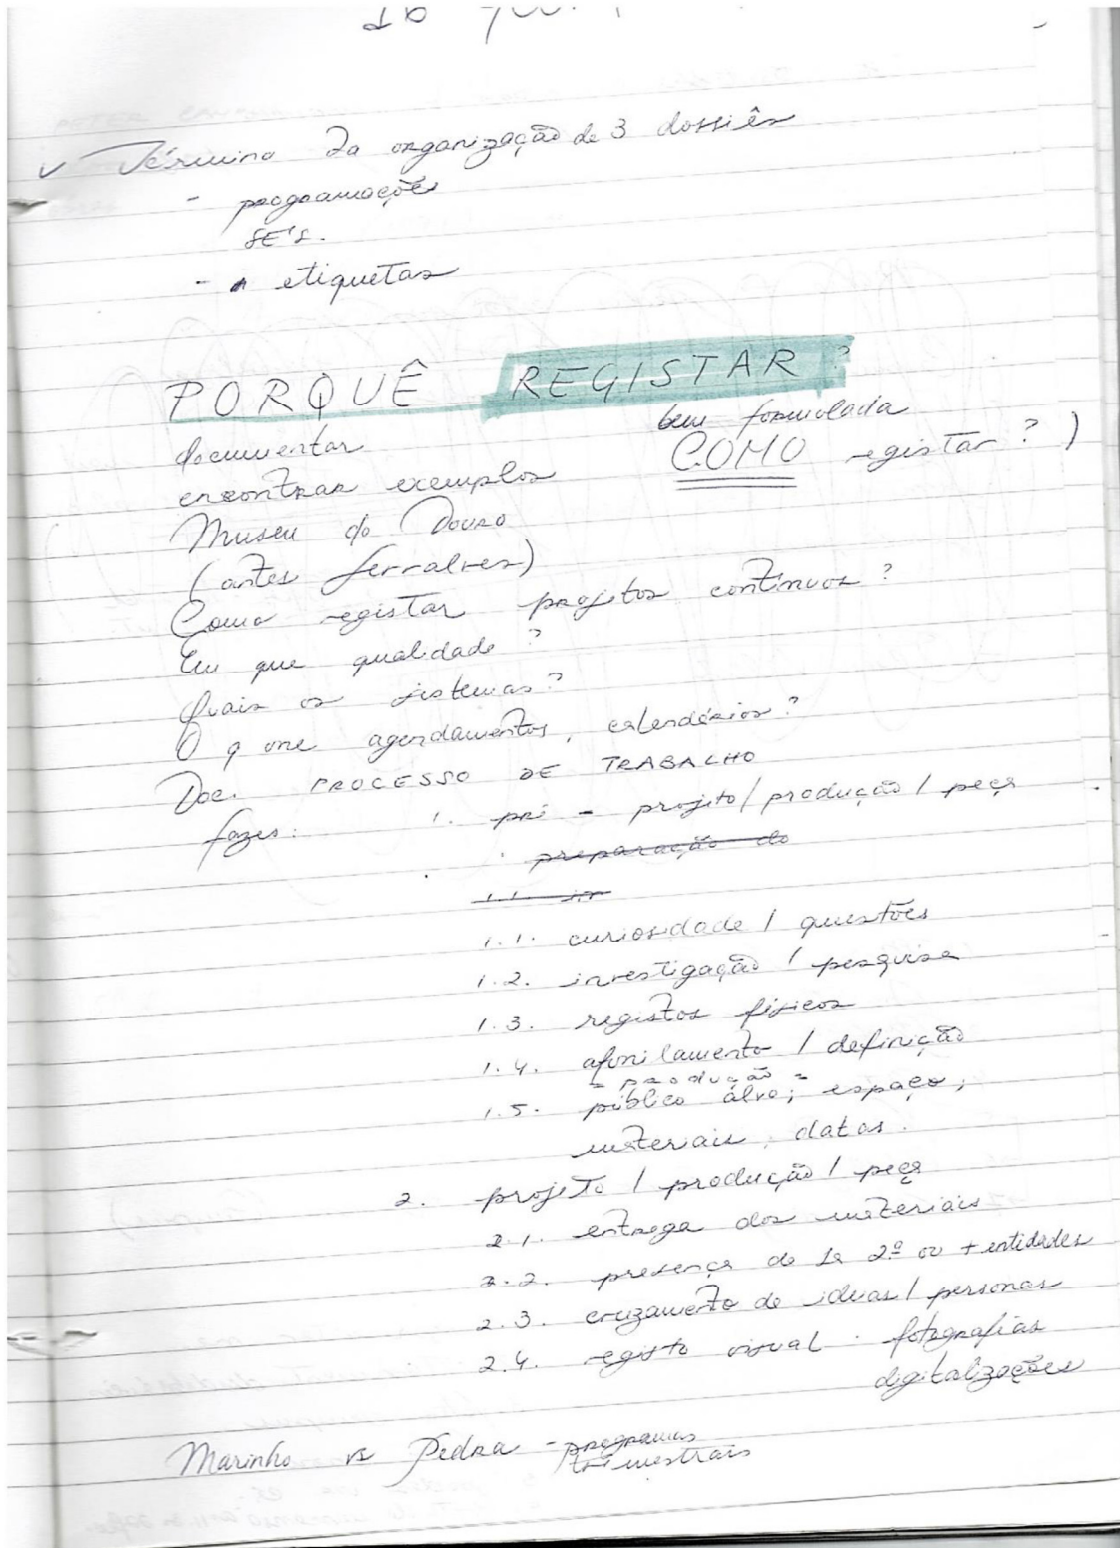 ✓ Término da organização de 3 dossiês
- programações
SE's.
- etiquetas
PORQUÊ REGISTAR?
documentar
bem formulada
COMO registar? )
encontrar exemplos
Museu do Douro
(antes Serralves)
Como registar projetos contínuos?
Em que qualidade?
Quais os sistemas?
O q one agendamentos, calendários?
Doc. PROCESSO DE TRABALHO
fazes: 1. pré - projeto / produção / peça
preparação do
1.1.
1.1. curiosidade / questões
1.2. investigação / pesquisa
1.3. registos físicos
1.4. afunilamento / definição
= produção =
1.5. público alvo; espaço;
materiais, datas.
2. projeto / produção / peça
2.1. entrega dos materiais
2.2. presença de 2º ou + entidades
2.3. cruzamento de ideias / personas
2.4. registo visual. fotografias
digitalizações
Marinho vs Pedra - programas
trimestrais